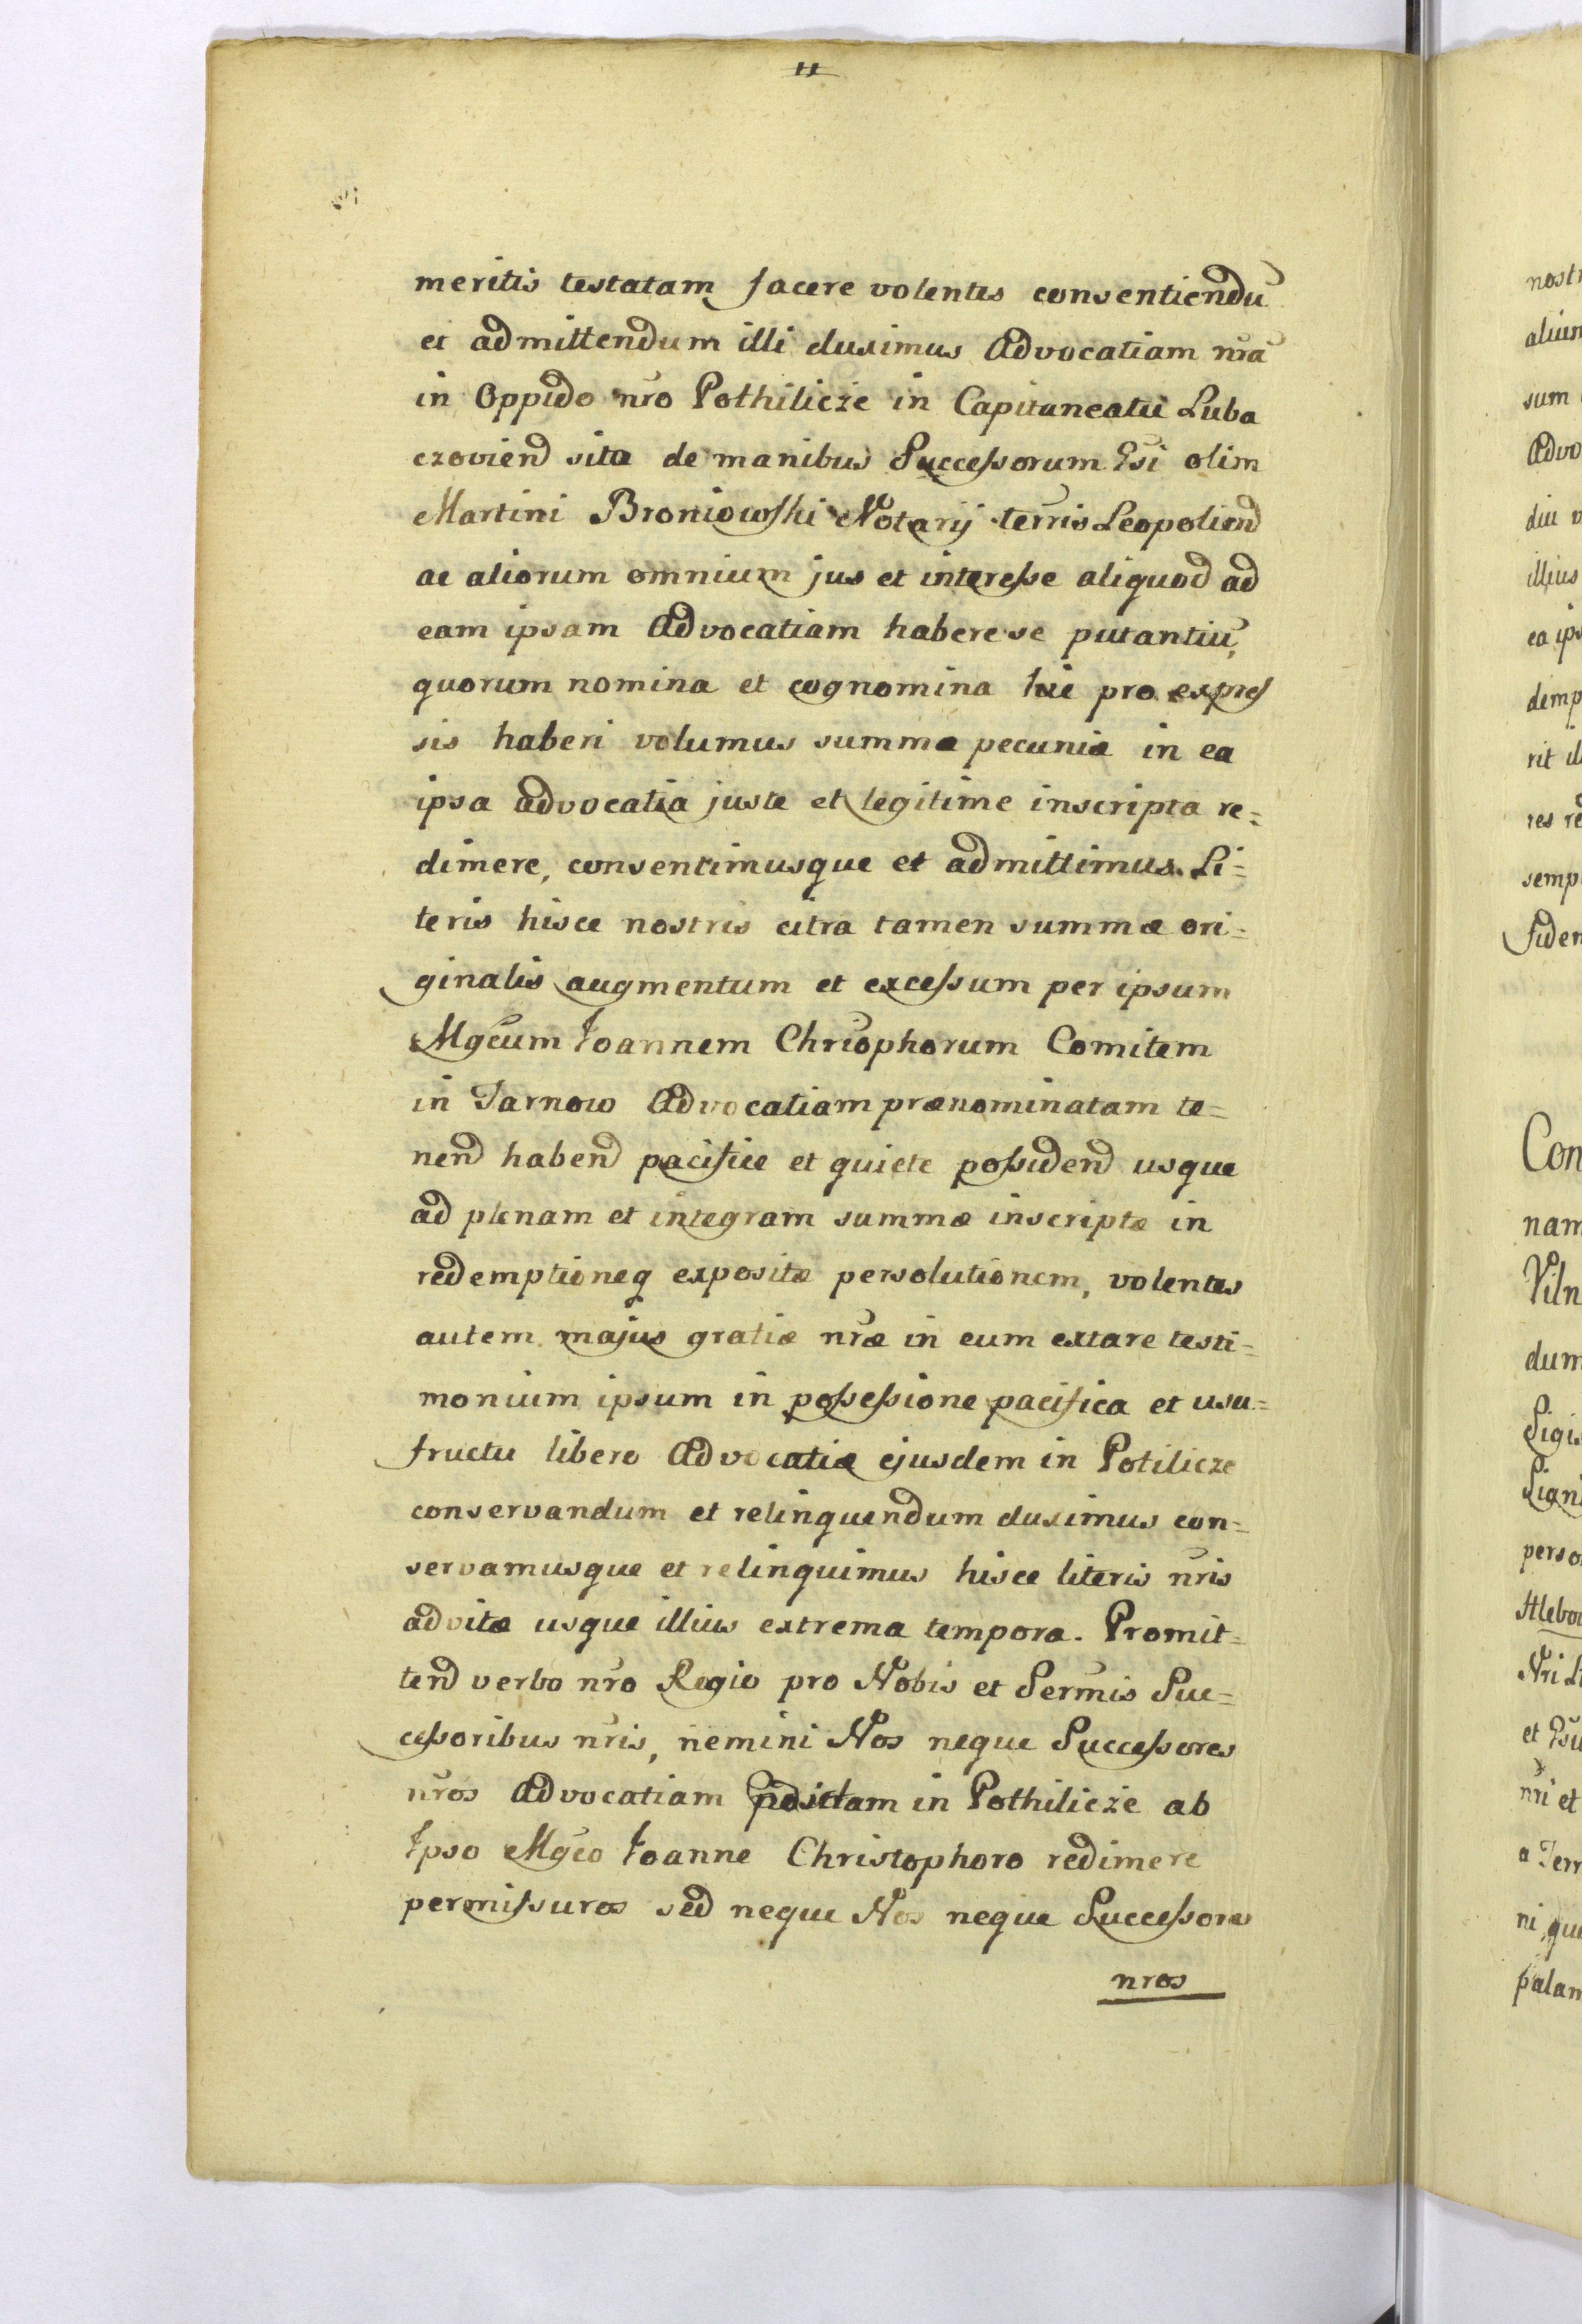 11
meritis testatam facere volentes consentiendū
et admittendum illi duximus Advocatiam nrã
in Oppido nro Pothilicze in Capitaneatu Luba
czovien̄ sita de manibus Successorum Gsi olim
Martini Broniowski Notarij terris Leopolien̄
ac aliorum omnium jus et interesse aliquod ad
eam ipsam Advocatiam habere se putantiū,
quorum nomina et cognomina hic pro expres
sis haberi volumus summæ pecuniæ in ea
ipsa advocatia juste et legitime inscripta re=
dimere, consentimusque et admittimus. Li=
teris hisce nostris citra tamen summæ ori=
ginalis augmentum et excessum per ipsum
Mgcum Joannem Chrūophorum Comitem
in Tarnow Advocatiam prænominatam te=
nend habend pacifice et quiete possidend usque
ad plenam et integram summæ inscriptæ in
redemptioneq expositæ persolutionem, volentes
autem majus gratiæ nræ in eum extare testi=
monium ipsum in possessione pacifica et usu=
fructu libero Advocatiæ ejusdem in Potilicze
conservandum et relinquendum duximus con=
servamusque et relinquimus hisce literis nris
ad vitæ usque illius extrema tempora. Promit=
tend verbo nro Regio pro Nobis et Sermis Suc=
cessoribus nris, nemini Nos neque Successores
nros Advocatiam in Pothilicze ab
Ipso Mgco Joanne Christophoro redimere
permissuros sed neque Nos neque Successores
nros
nost
alium
sum
Advo
diu v
illius
ea ips
demp
rit il
res re
semp
fiden
Con
nam
Viln
dum
Sigis
perso
Hlebo
Nri Li
et Gsu
nri et
a Terr
ni, qu
palam